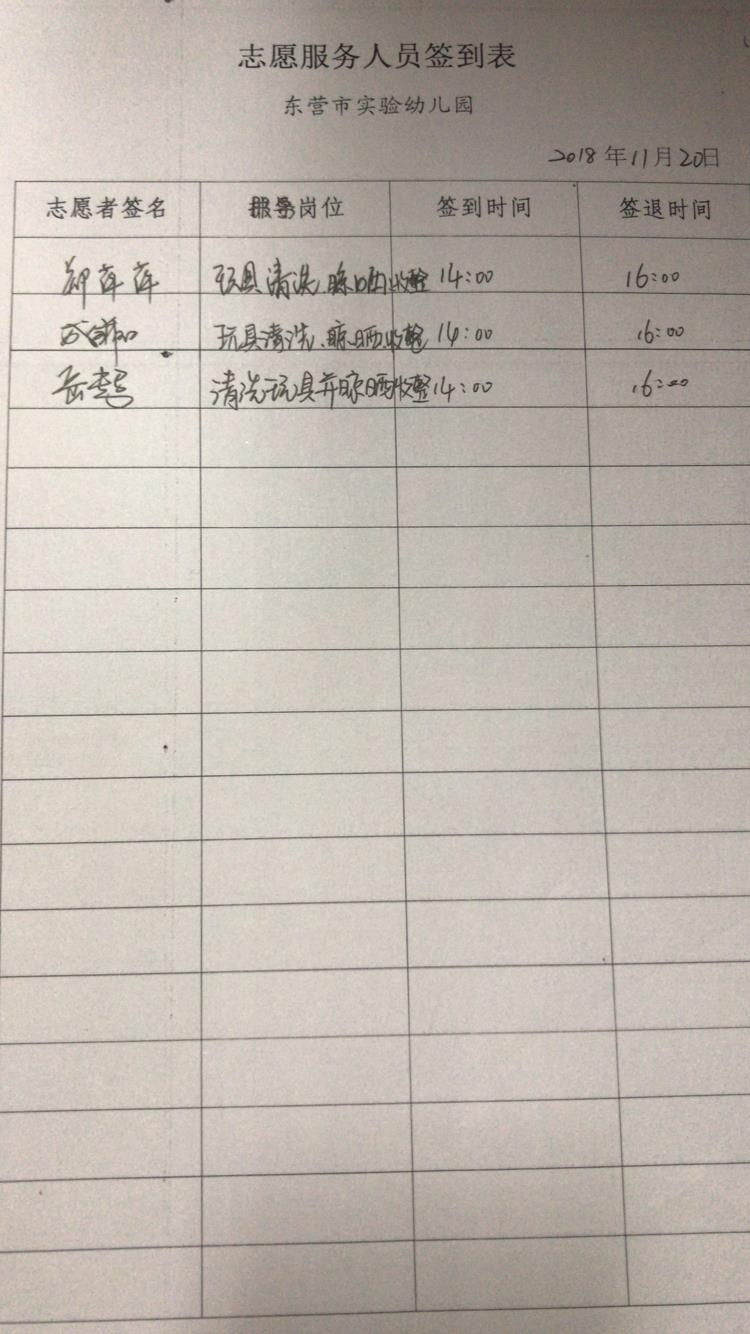 志愿服务人员签到表
东营市实验幼儿园
2018年11月20日
志愿者签名 岗位 签到时间 签退时间
郑萍萍 玩具清洗、晾晒收整 14:00 16:00
玩具清洗、晾晒收整 14:00 16:00
岳 清洗玩具并晾晒收整 14:00 16:00